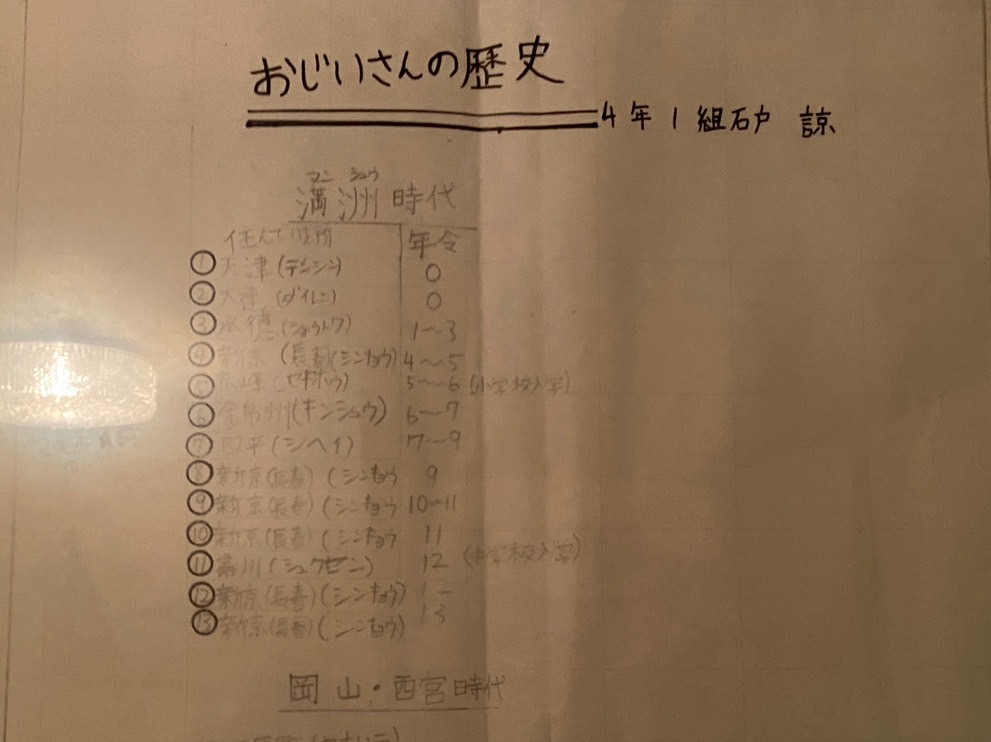 おじいさんの歴史
4年1組石戸 諒
マン シュウ
満洲時代
年令
① 天津(テンシン) 0
② (ダイレン) 0
③ (ショウトク) 1〜3
④ 新京(長春)(シンキョウ) 4〜5
⑤ (セキホウ) 5〜6 (小学校入学)
⑥ (キンシュウ) 6〜7
⑦ 四平(シヘイ) 7〜9
⑧ 新京(長春)(シンキョウ 9
⑨ 新京(長春)(シンキョウ 10〜11
⑩ 新京(長春)(シンキョウ 11
⑪ (シュクセン) 12 (中学校入学)
⑫ 新京(長春)(シンキョウ)
⑬ 新京(長春)(シンキョウ) 13
岡山・西宮時代